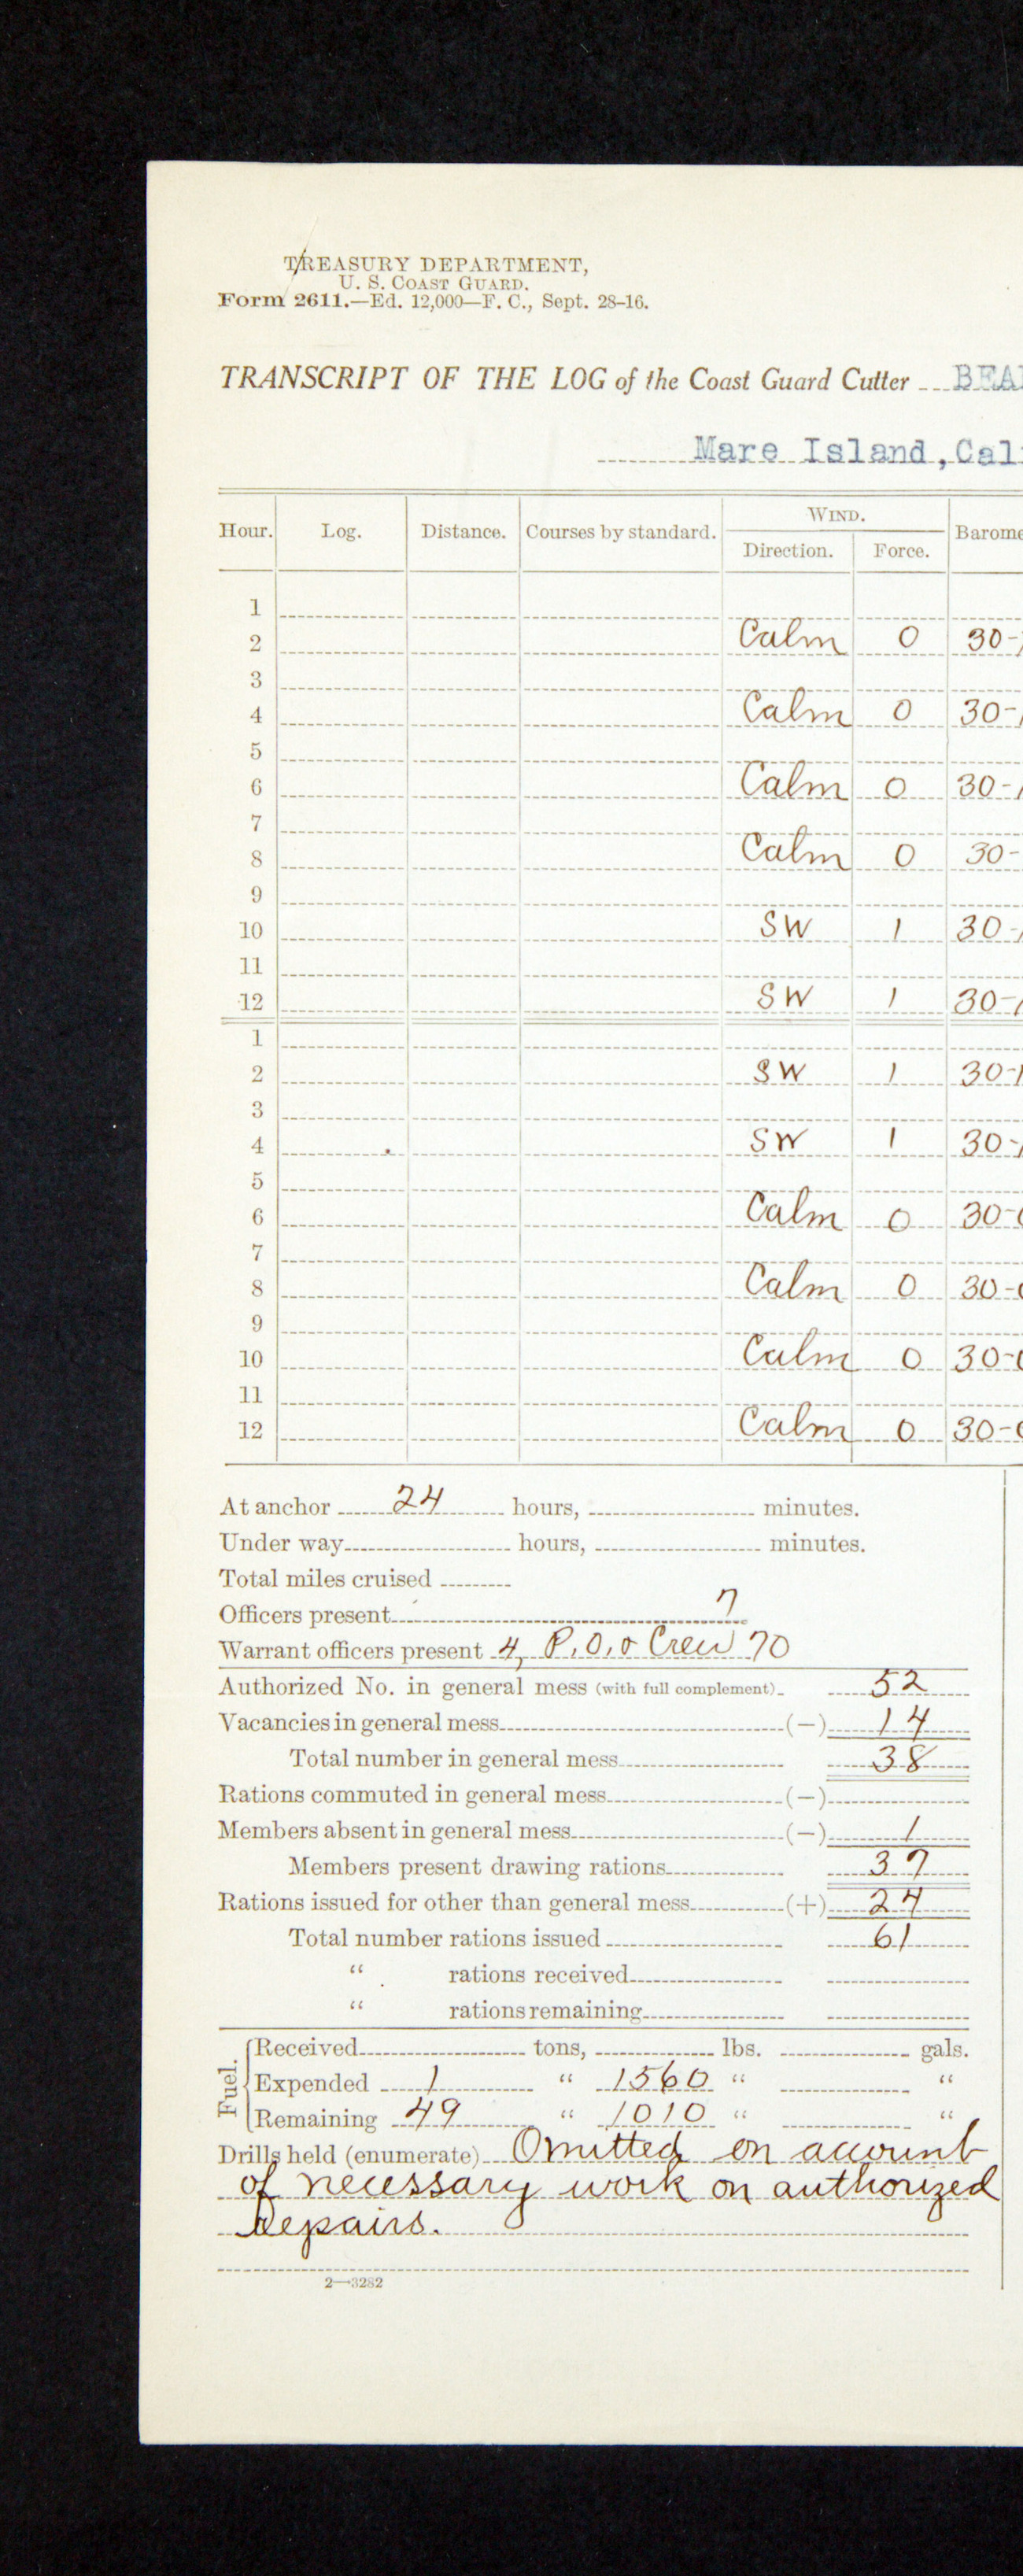 TREASURY DEPARTMENT,
U. S. COAST GUARD.
Form 2611.—Ed. 12,000—F. C., Sept. 28-16.
TRANSCRIPT OF THE LOG of the Coast Guard Cutter BEA
Mare Island, Cali
Hour. Log. Distance. Courses by standard. WIND. Barome
Direction. Force.
1
2 Calm 0 30-
3
4 Calm 0 30-
5
6 Calm 0 30-
7
8 Calm 0 30-
9
10 SW 1 30-
11
12 SW 1 30-
1
2 SW 1 30-
3
4 SW 1 30-
5
6 Calm 0 30-0
7
8 Calm 0 30-0
9
10 Calm 0 30-0
11
12 Calm 0 30-0
At anchor 24 hours, minutes.
Under way hours, minutes.
Total miles cruised
Officers present 7
Warrant officers present 4, P.O. & Crew 70
Authorized No. in general mess (with full complement) 52
Vacancies in general mess (—) 14
Total number in general mess 38
Rations commuted in general mess (—)
Members absent in general mess (—) 1
Members present drawing rations 37
Rations issued for other than general mess (+) 24
Total number rations issued 61
“ rations received
“ rations remaining
Fuel.
Received tons, lbs. gals.
Expended 1 “ 1560 “ “
Remaining 49 “ 1010 “ “
Drills held (enumerate) Omitted on account
of necessary work on authorized
repairs.
2—3282